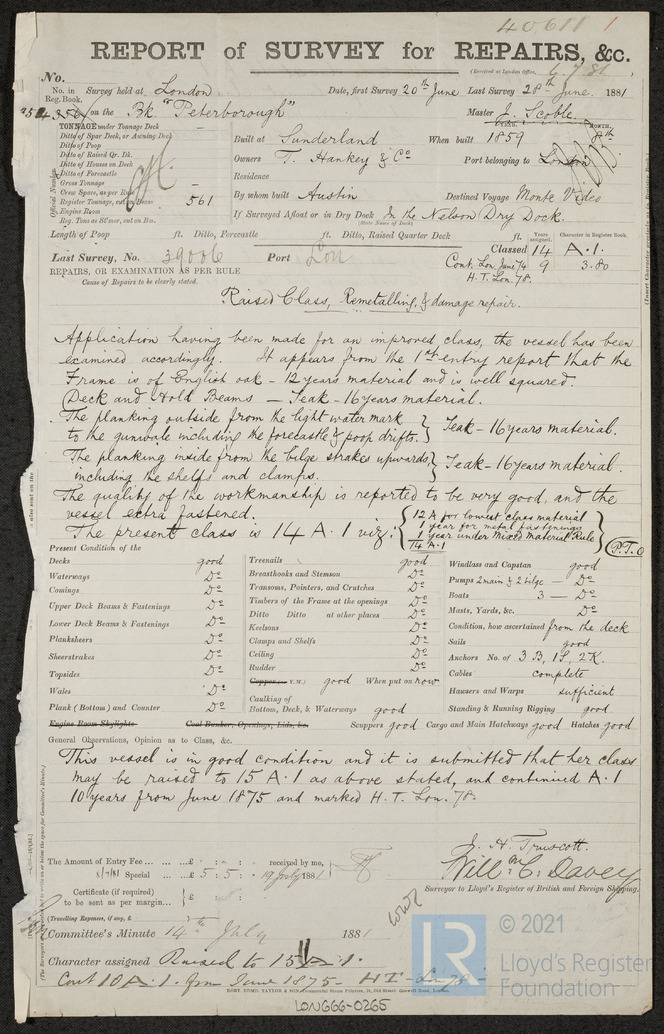 40611 1
REPORT of SURVEY for REPAIRS, &c.
(Received at London Office, 6.7.81)
No.
No. in Reg. Book. Survey held at London Date, first Survey 20th June Last Survey 28th June 1881
on the Bk "Peterborough" Master J. Scoble
TONNAGE under Tonnage Deck
Ditto of Spar Deck, or Awning Deck
Ditto of Poop
Ditto of Raised Qr. Dk.
Ditto of Houses on Deck
Ditto of Forecastle
Gross Tonnage
Crew Space, as per Rule
Register Tonnage, cut on Beam 561
Engine Room
Reg. Tons as St'mer, cut on Bm.
Official Number
Built at Sunderland When built 1859 MONTH
Owners T. Hankey & Co Port belonging to London
Residence
By whom built Austin Destined Voyage Monte Video
If Surveyed Afloat or in Dry Dock In the Nelson Dry Dock.
(State Name of Dock)
Length of Poop ft. Ditto, Forecastle ft. Ditto, Raised Quarter Deck ft.
Years assigned. Character in Register Book.
Last Survey, No. 39006 Port Lon Classed 14 A.1.
Cont. Lon. June 74 9 3.80
H.T. Lon. 78.
REPAIRS, OR EXAMINATION AS PER RULE
Cause of Repairs to be clearly stated.
Raised Class, Remetalling, & damage repair.
Application having been made for an improved class, the vessel has been
examined accordingly. It appears from the 1st entry report that the
Frame is of English oak - 12 years material and is well squared.
Deck and Hold Beams - Teak - 16 years material.
The planking outside from the light water mark
to the gunwale including the forecastle & poop drifts. } Teak - 16 years material.
The planking inside from the bilge strakes upwards,
including the shelfs and clamps. } Teak - 16 years material.
The quality of the workmanship is reported to be very good, and the
vessel extra fastened.
The present class is 14 A.1 viz: { 12 A for lowest class material
1 year for metal fastenings
1 year under Mixed Material Rule
14 A.1
P.T.O
Present Condition of the
Decks good
Waterways Do
Comings Do
Upper Deck Beams & Fastenings Do
Lower Deck Beams & Fastenings Do
Planksheers Do
Sheerstrakes Do
Topsides Do
Wales Do
Plank (Bottom) and Counter Do
Engine Room Skylights Coal Bunker, Openings, Lids, &c.
Treenails good
Breasthooks and Stemson Do
Transoms, Pointers, and Crutches Do
Timbers of the Frame at the openings Do
Ditto Ditto at other places Do
Keelsons Do
Clamps and Shelfs Do
Ceiling Do
Rudder Do
Copper (or Y.M.) good When put on now
Caulking of
Bottom, Deck, & Waterways good
Windlass and Capstan good
Pumps 2 main & 2 bilge - Do
Boats 3 - Do
Masts, Yards, &c. Do
Condition, how ascertained from the deck
Sails good
Anchors No. of 3 B, 1 S, 2 K.
Cables complete
Hawsers and Warps sufficient
Standing & Running Rigging good
Scuppers good Cargo and Main Hatchways good Hatches good
General Observations, Opinion as to Class, &c.
This vessel is in good condition and it is submitted that her class
may be raised to 15 A.1 as above stated, and continued A.1
10 years from June 1875 and marked H.T. Lon. 78.
J. H. Truscott.
Will m C. Davey
Surveyor to Lloyd's Register of British and Foreign Shipping.
The Amount of Entry Fee ... £ : : received by me,
Special ... £ 5 : 5 : 19 July 1881
Certificate (if required)
to be sent as per margin...
(Travelling Expenses, if any, £ )
Committee's Minute 14th July 1881
Character assigned Raised to 15 A.1.
Cont 10 A.1. from June 1875 - HT - Lon 78
© 2021
Lloyd's Register
Foundation
LR
LON666-0265